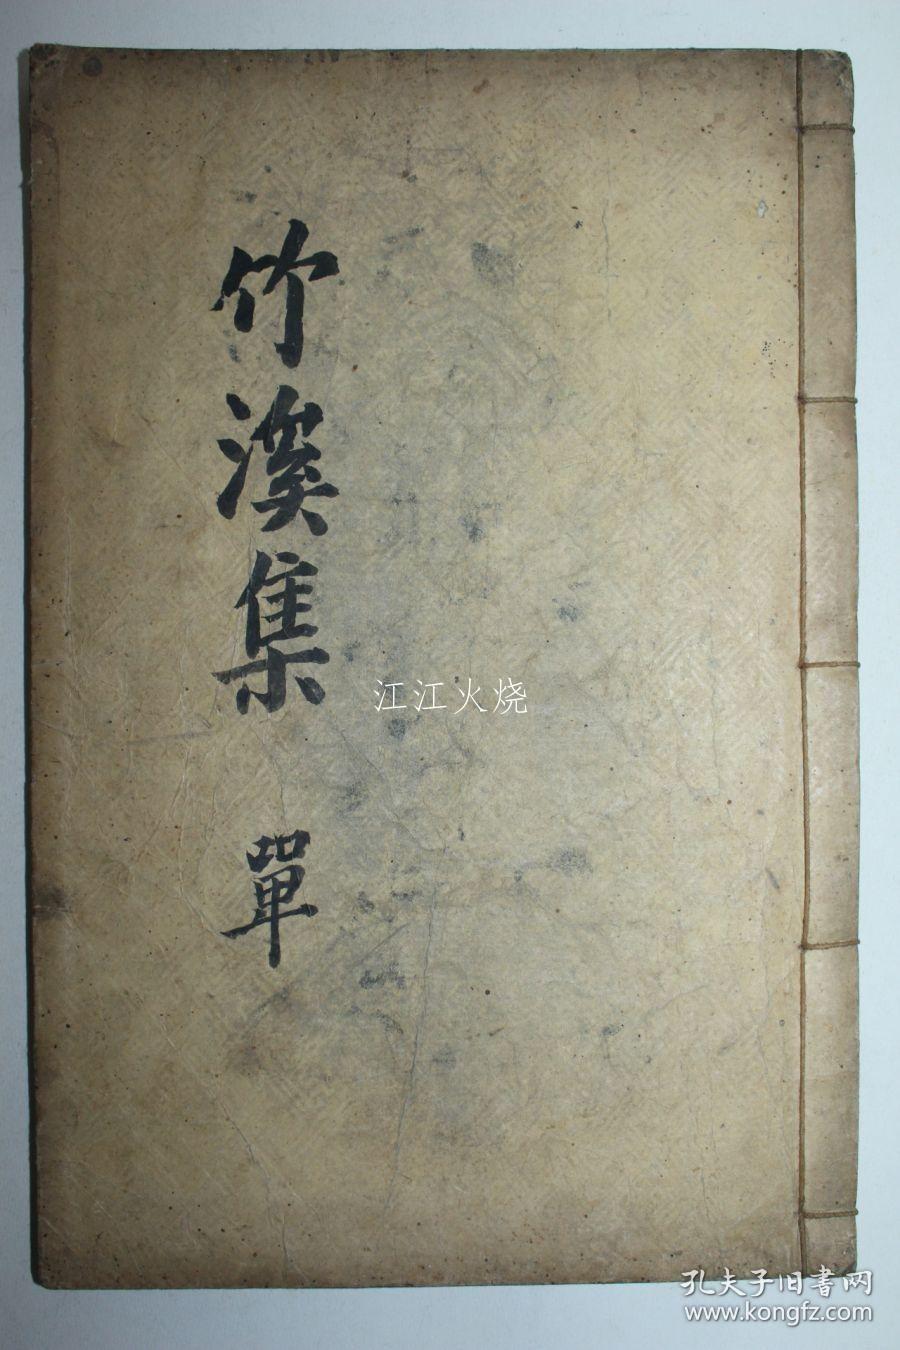 竹溪集
單
江江火烧
孔夫子旧書网
www.kongfz.com